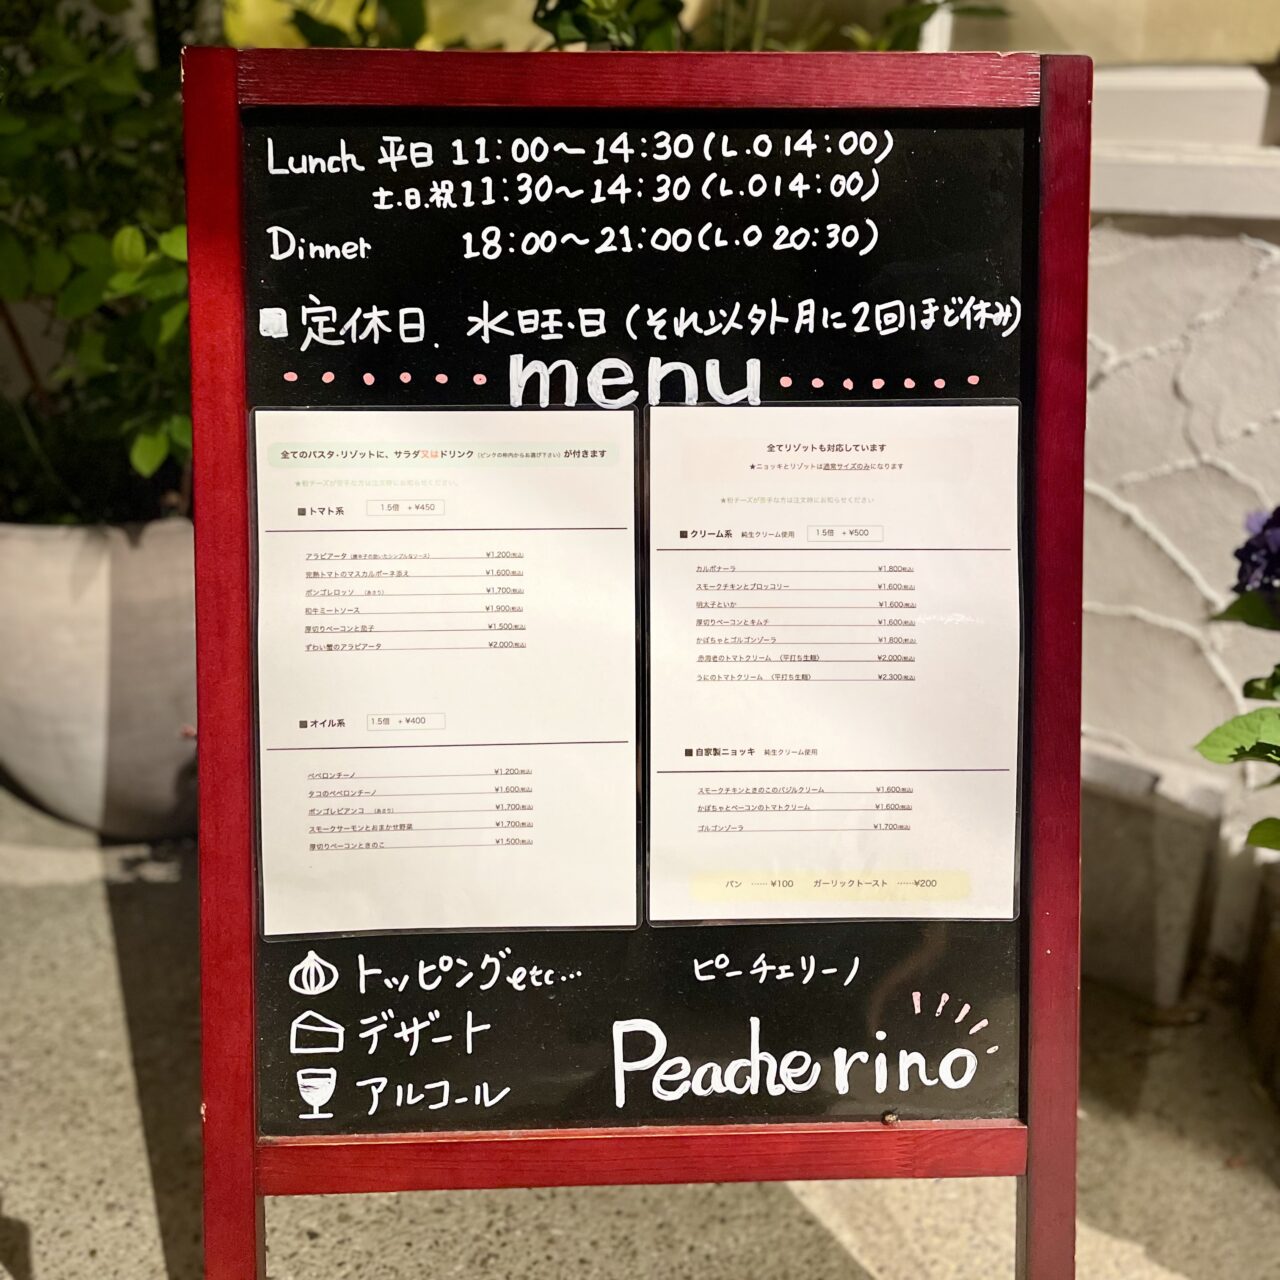 Lunch 平日 11:00〜14:30(L.O 14:00)
土.日.祝 11:30〜14:30(L.O 14:00)
Dinner 18:00〜21:00(L.O 20:30)
■定休日. 水旺.日(それ以外月に2回ほど休み)
menu
全てのパスタ・リゾットに、サラダ又はドリンク(ピンクの枠内からお選び下さい)が付きます
★粉チーズが苦手な方は注文時にお知らせください。
■トマト系 1.5倍 +¥450
アラビアータ(唐辛子の効いたシンプルなソース) ¥1,200(税込)
完熟トマトのマスカルポーネ添え ¥1,600(税込)
ボンゴレロッソ (あさり) ¥1,700(税込)
和牛ミートソース ¥1,900(税込)
厚切りベーコンと茄子 ¥1,500(税込)
ずわい蟹のアラビアータ ¥2,000(税込)
■オイル系 1.5倍 +¥400
ペペロンチーノ ¥1,200(税込)
タコのペペロンチーノ ¥1,600(税込)
ボンゴレビアンコ (あさり) ¥1,700(税込)
スモークサーモンとおまかせ野菜 ¥1,700(税込)
厚切りベーコンときのこ ¥1,500(税込)
全てリゾットも対応しています
★ニョッキとリゾットは通常サイズのみになります
★粉チーズが苦手な方は注文時にお知らせください
■クリーム系 純生クリーム使用 1.5倍 +¥500
カルボナーラ ¥1,800(税込)
スモークチキンとブロッコリー ¥1,600(税込)
明太子といか ¥1,600(税込)
厚切りベーコンとキムチ ¥1,600(税込)
かぼちゃとゴルゴンゾーラ ¥1,800(税込)
赤海老のトマトクリーム 〈平打ち生麺〉 ¥2,000(税込)
うにのトマトクリーム 〈平打ち生麺〉 ¥2,300(税込)
■自家製ニョッキ 純生クリーム使用
スモークチキンときのこのバジルクリーム ¥1,600(税込)
かぼちゃとベーコンのトマトクリーム ¥1,600(税込)
ゴルゴンゾーラ ¥1,700(税込)
パン ……¥100 ガーリックトースト ……¥200
トッピングetc...
デザート
アルコール
ピーチェリーノ
Peacherino